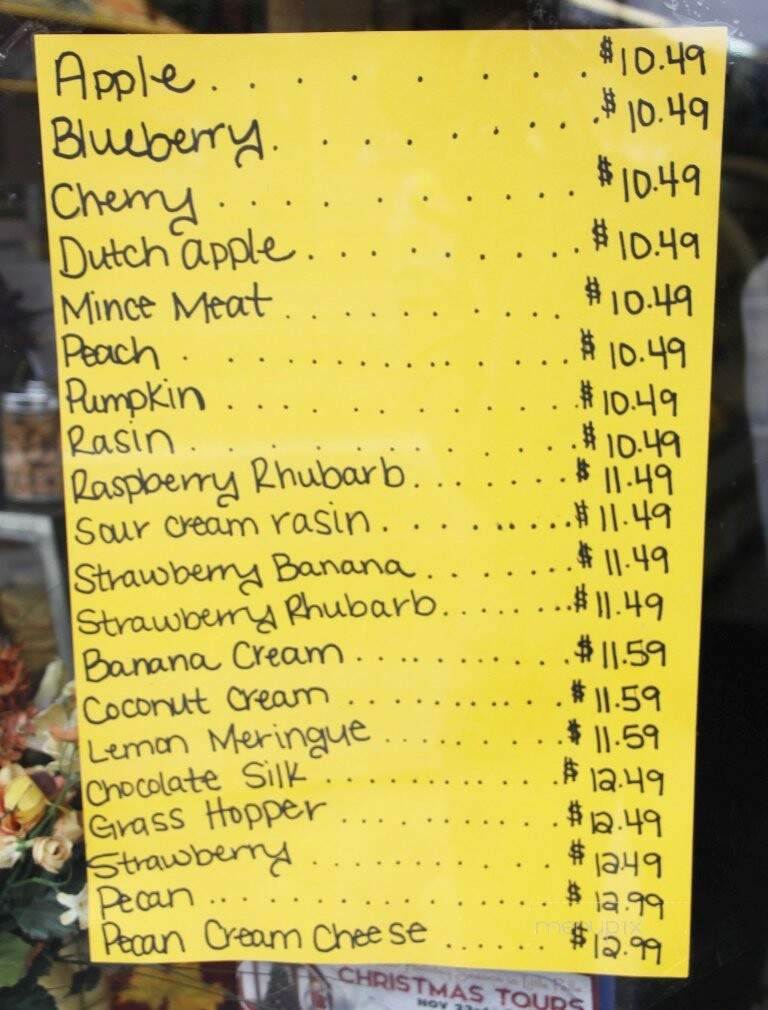 Apple . . . . . . . $10.49
Blueberry . . . . . . . . $10.49
Cherry . . . . . . . . . . . $10.49
Dutch apple . . . . . . . . . $10.49
Mince Meat . . . . . . . . . $10.49
Peach . . . . . . . . . . . . . . . $10.49
Pumpkin . . . . . . . . . . . . $10.49
Rasin . . . . . . . . . . . . $10.49
Raspberry Rhubarb . . . . . . . $11.49
Sour cream rasin . . . . . . . . . $11.49
Strawberry Banana . . . . . . $11.49
Strawberry Rhubarb . . . . . . . . $11.49
Banana Cream . . . . . . . . . . . $11.59
Coconut Cream . . . . . . . . . . $11.59
Lemon Meringue . . . . . . . . $11.59
Chocolate Silk . . . . . . . . . . . $12.49
Grass Hopper . . . . . . . . . . . $12.49
Strawberry . . . . . . . . . . $12.49
Pecan . . . . . . . . . . . . . . . . $12.99
Pecan Cream Cheese . . . . . . $12.99
menupix
CHRISTMAS TOURS